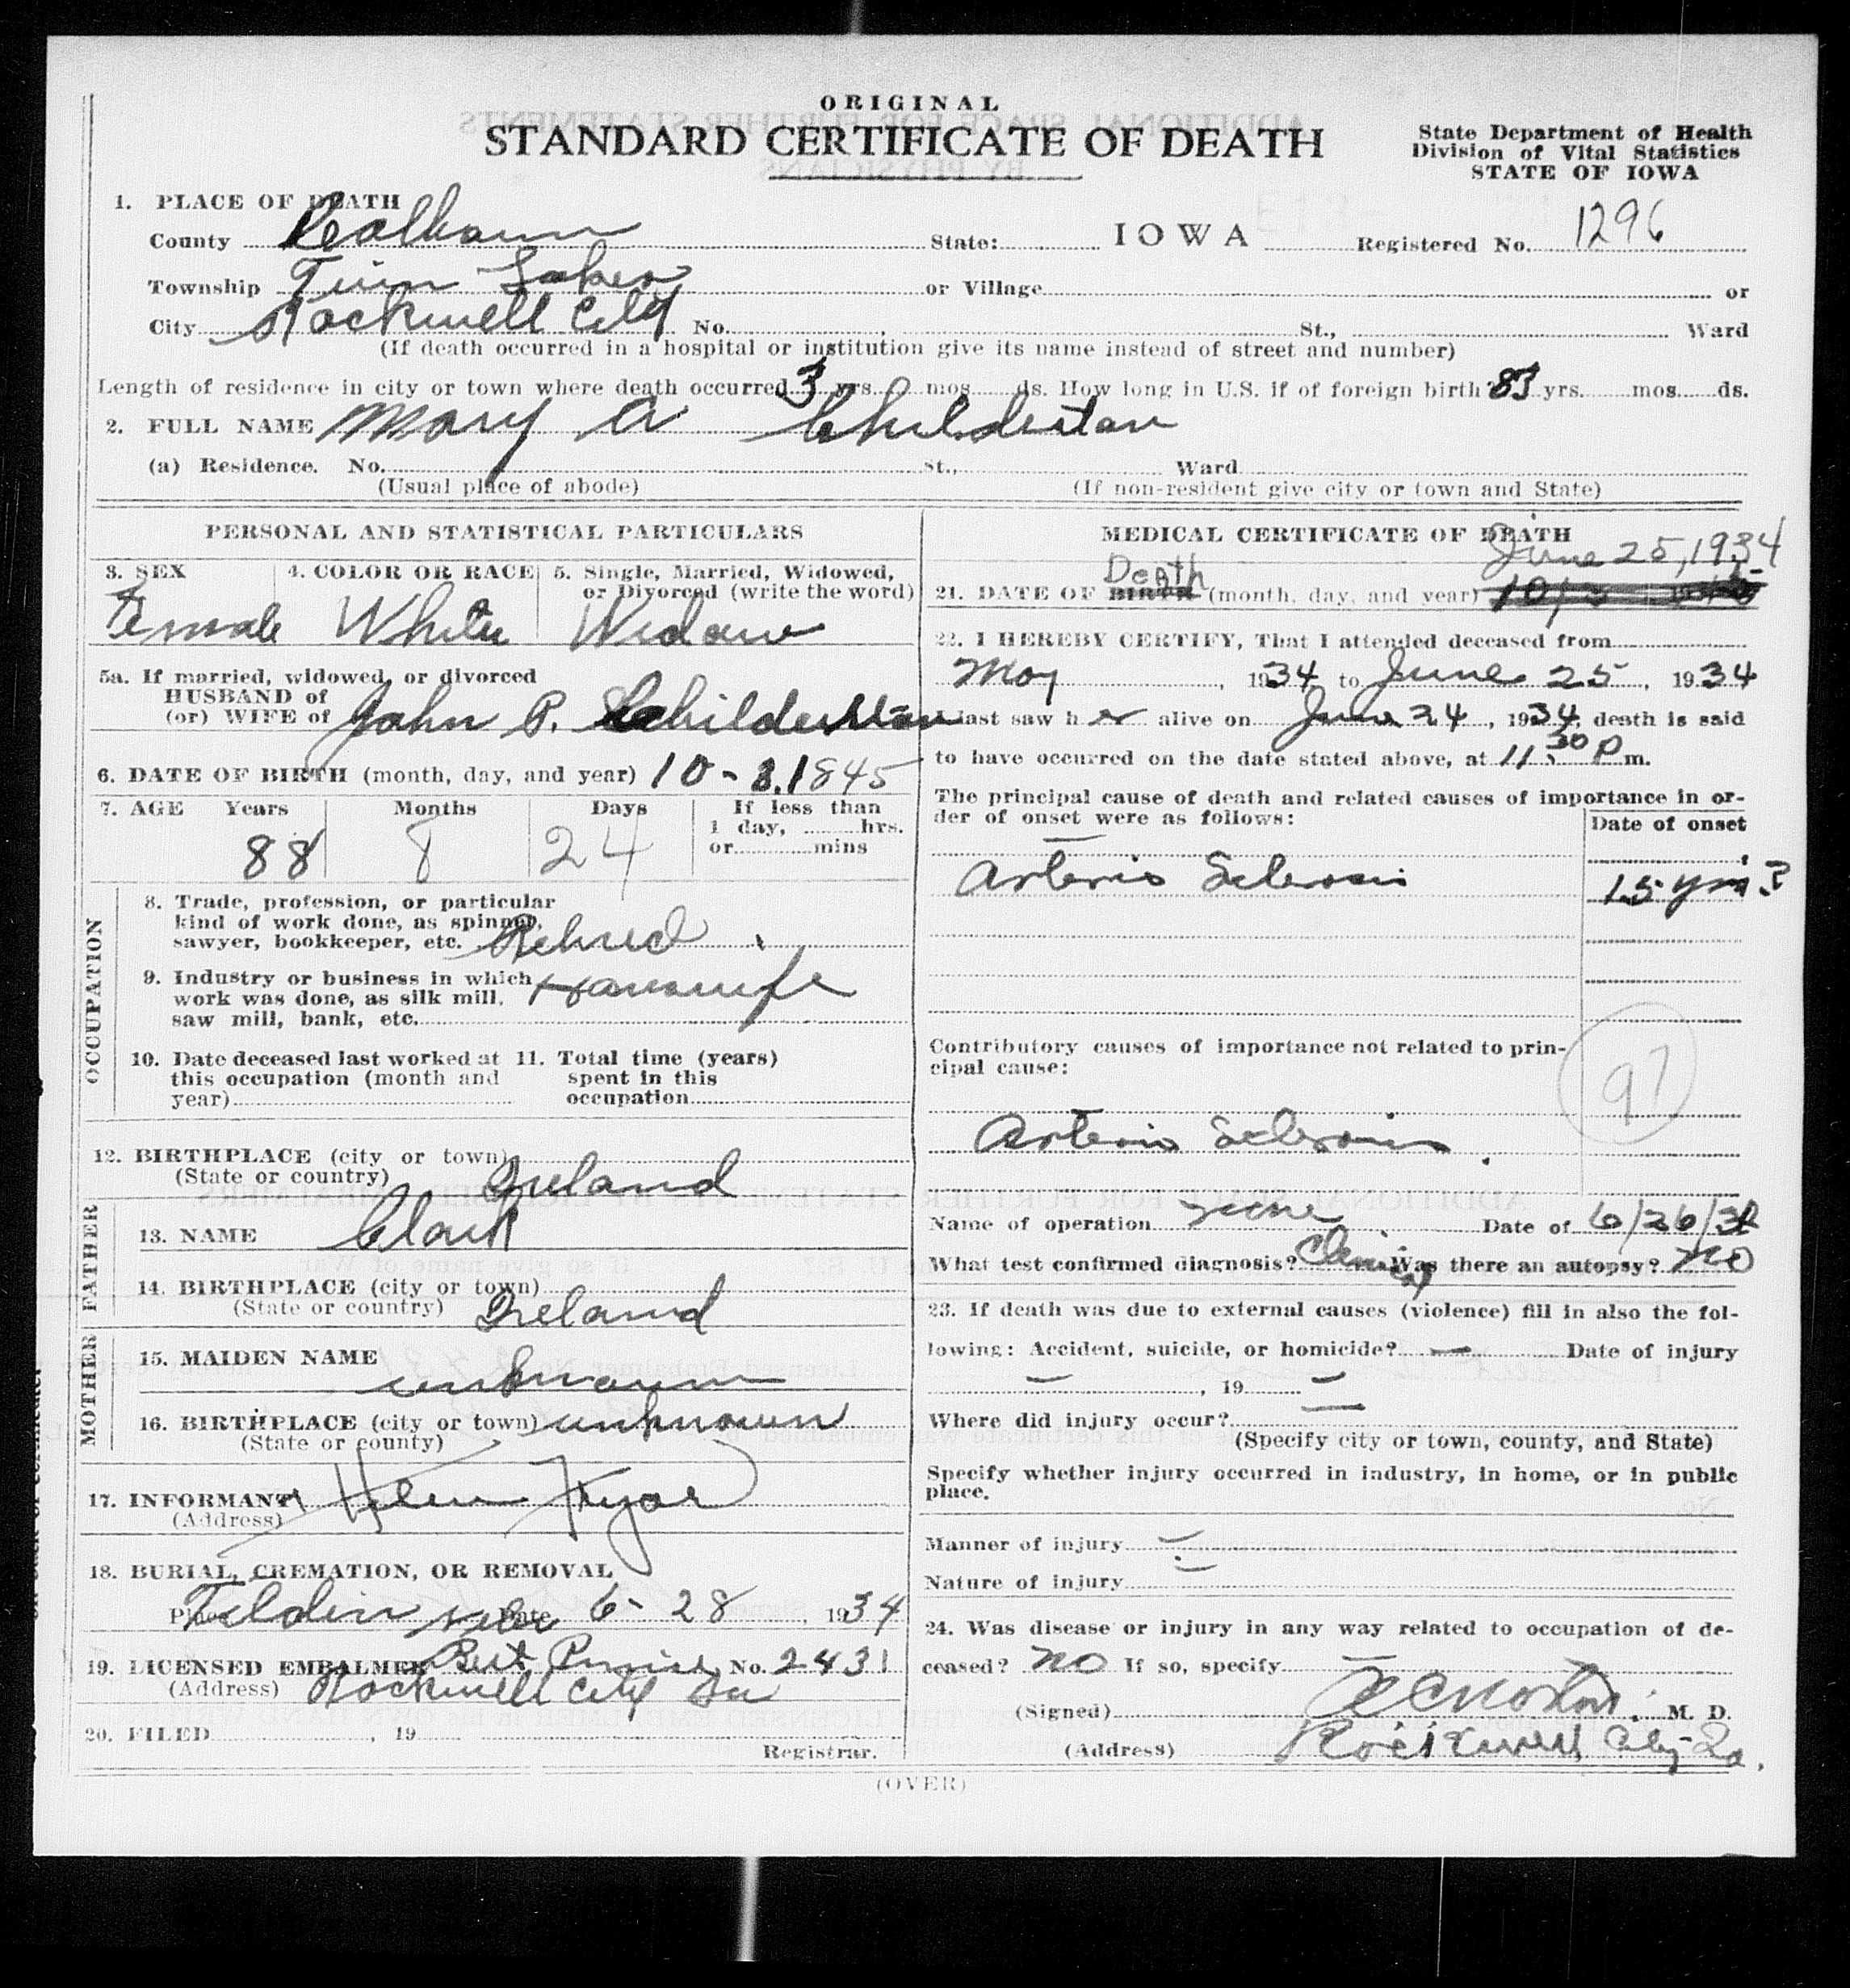 ORIGINAL
STANDARD CERTIFICATE OF DEATH
State Department of Health
Division of Vital Statistics
STATE OF IOWA
1. PLACE OF DEATH
County Calhoun State: IOWA Registered No. 1296
Township Twin Lakes or Village or
City Rockwell City No. St., Ward
(If death occurred in a hospital or institution give its name instead of street and number)
Length of residence in city or town where death occurred 3 yrs. mos. ds. How long in U.S. if of foreign birth? 83 yrs. mos. ds.
2. FULL NAME Mary A Childerstan
(a) Residence. No. St., Ward
(Usual place of abode) (If non-resident give city or town and State)
PERSONAL AND STATISTICAL PARTICULARS
3. SEX 4. COLOR OR RACE 5. Single, Married, Widowed,
or Divorced (write the word)
Female White Widow
5a. If married, widowed, or divorced
HUSBAND of
(or) WIFE of John P. Childerstan
6. DATE OF BIRTH (month, day, and year) 10-3.1845
7. AGE Years Months Days If less than
1 day, hrs.
or mins
88 8 24
OCCUPATION
8. Trade, profession, or particular
kind of work done, as spinner,
sawyer, bookkeeper, etc. Retired
9. Industry or business in which
work was done, as silk mill,
saw mill, bank, etc. Housewife
10. Date deceased last worked at 11. Total time (years)
this occupation (month and spent in this
year) occupation
12. BIRTHPLACE (city or town)
(State or country) Ireland
FATHER
13. NAME Clark
14. BIRTHPLACE (city or town)
(State or country) Ireland
MOTHER
15. MAIDEN NAME
unknown
16. BIRTHPLACE (city or town) unknown
(State or county)
17. INFORMANT Helen Kyar
(Address)
18. BURIAL, CREMATION, OR REMOVAL
Place Tilden Nebr Date 6-28, 1934
19. LICENSED EMBALMER Bert No. 2431
(Address) Rockwell City Ia
20. FILED , 19
Registrar.
MEDICAL CERTIFICATE OF DEATH
June 25, 1934
Death
21. DATE OF BIRTH (month, day, and year)
22. I HEREBY CERTIFY, That I attended deceased from
May , 1934, to June 25, 1934
I last saw her alive on June 24, 1934, death is said
to have occurred on the date stated above, at 11:30 P m.
The principal cause of death and related causes of importance in or-
der of onset were as follows: Date of onset
Arterio Sclerosis 15 yrs?
Contributory causes of importance not related to prin-
cipal cause:
97
Arterio Sclerosis
Name of operation none Date of 6/26/34
What test confirmed diagnosis? Clinical Was there an autopsy? No
23. If death was due to external causes (violence) fill in also the fol-
lowing: Accident, suicide, or homicide? — Date of injury
— , 19 —
Where did injury occur? —
(Specify city or town, county, and State)
Specify whether injury occurred in industry, in home, or in public
place.
Manner of injury —
Nature of injury —
24. Was disease or injury in any way related to occupation of de-
ceased? No If so, specify —
(Signed) M. D.
(Address) Rockwell City Ia.
(OVER)